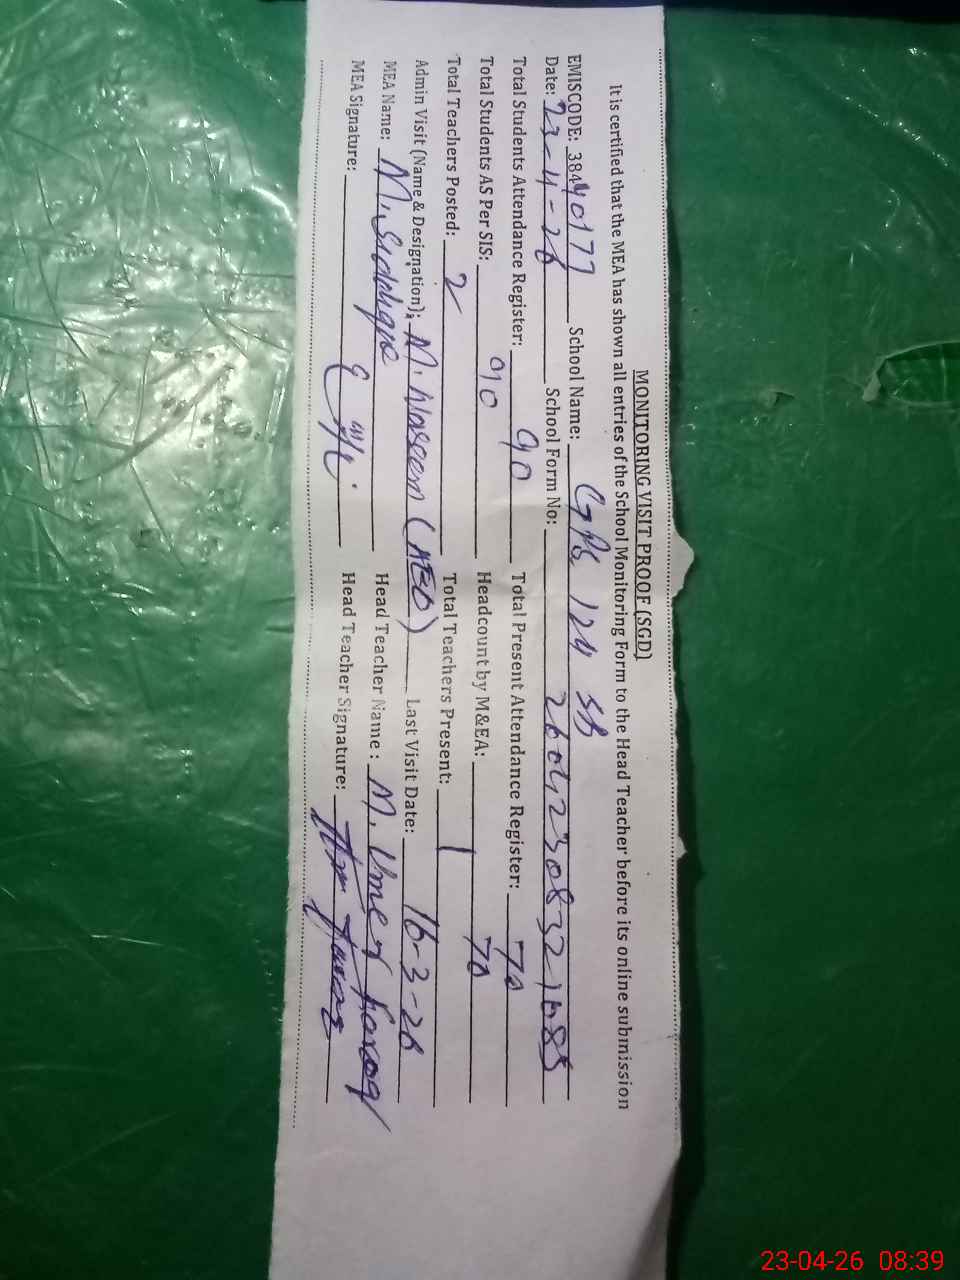 MONITORING VISIT PROOF (SGD)
It is certified that the MEA has shown all entries of the School Monitoring Form to the Head Teacher before its online submission
EMISCODE: 38440177 School Name: GPS 124 SB
Date: 23-4-26 School Form No: 2604230832-1685
Total Students Attendance Register: 90 Total Present Attendance Register: 70
Total Students AS Per SIS: 90 Headcount by M&EA: 70
Total Teachers Posted: 2 Total Teachers Present: 1
Admin Visit (Name & Designation): M. Waseem (AEO) Last Visit Date: 16-3-26
MEA Name: M. Siddique Head Teacher Name : M. Umer Farooq
MEA Signature: Head Teacher Signature:
23-04-26 08:39